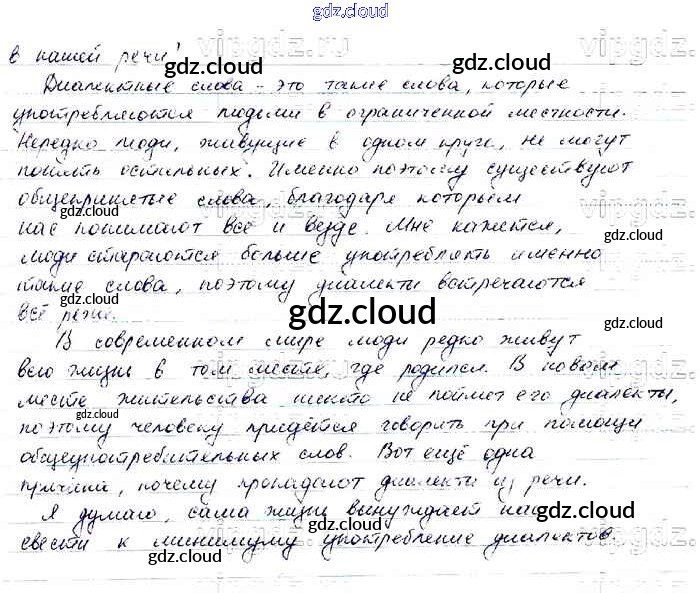 gdz.cloud
в нашей речи!
Диалектные слова - это такие слова, которые
употребляются людьми в ограниченной местности.
Нередко люди, живущие в одном круге, не могут
понять остальных. Именно поэтому существуют
общепринятые слова, благодаря которым
нас понимают все и везде. Мне кажется,
люди стараются больше употреблять именно
такие слова, поэтому диалекты встречаются
всё реже.
В современном мире люди редко живут
всю жизнь в том месте, где родился. В новом
месте жительства никто не поймет его диалекты,
поэтому человеку придётся говорить при помощи
общеупотребительных слов. Вот ещё одна
причина, почему пропадают диалекты из речи.
Я думаю, сама жизнь вынуждает нас
свести к минимуму употребление диалектов.